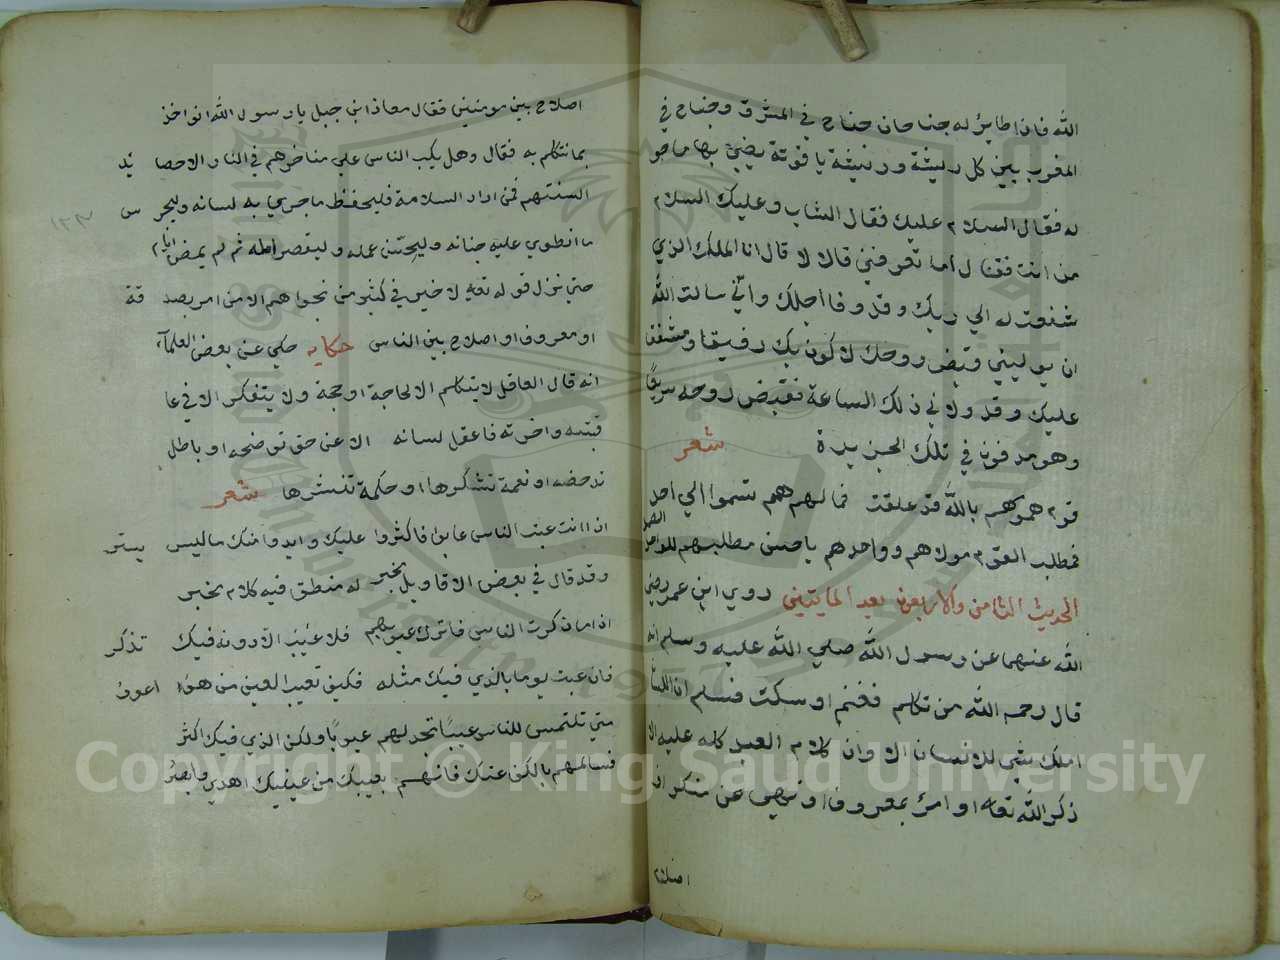 الله فاذا طاير له جناحان جناح في المشرق وجناح في
المغرب بين كل ريشة وريشة ياقوتة يضي بها
له فقال السلام عليك فقال الشاب وعليك السلام
من انت فقال اما تعرفني قال لا قال انا الملك الذي
شفعت له الي ربك وقد وفا اجلك واني سالت الله
ان يوليني قبض روحك لاكون بك رفيقا ومشفقا
عليك وقد ولاني ذلك الساعة فقبض روحه سريعا
وهو مدفون في تلك الجزيرة شعر
قوم همومهم بالله قد علقت فما لهم همم تسموا الي احد
فمطلب القوم مولاهم وواحدهم يا حسن مطلبهم للواحد الصمد
الحديث الثامن والاربعون بعد المايتين روي ابن عمر رضي
الله عنهما عن رسول الله صلي الله عليه وسلم انه
قال رحم الله من تكلم فغنم او سكت فسلم ان اللسان
املك شي للانسان الا وان كلام العبد كله عليه الا
ذكر الله تعالى او امر بمعروف او نهي عن منكر او
اصلاح
اصلاح بين مومنين فقال معاذ ابن جبل يا رسول الله انواخذ
بما نتكلم به فقال وهل يكب الناس علي مناخرهم في النار الا حصايد
السنتهم فمن اراد السلامة فليحفظ ما جري به لسانه وليحرس
ما انطوي عليه جنانه وليحسن عمله وليقصر امله ثم لم يمض ايام
حتي نزل قوله تعالى لا خير في كثير من نجواهم الا من امر بصدقة
او معروف او اصلاح بين الناس حكايه حكي عن بعض العلماء
انه قال العاقل لا يتكلم الا لحاجة او حجة ولا يتفكر الا في عا
قبته واخرته فاعقل لسانه الا عن حق توضحه او باطل
تدحضه او نعمة تشكرها او حكمة تنشرها شعر
اذا انت عبت الناس عابوا فاكثروا عليك وابدوا منك ما ليس يستر
وقد قال في بعض الاقاويل مخبر له منطق فيه كلام مخبر
اذا ما ذكرت الناس فاترك عيوبهم فلا عيب الا دونه فيك تذكر
فان عبت يوما بالذي فيك مثله فكيف تعيب العين من هو اعور
متي تلتمس للناس عيبا تجد لهم عيوبا ولكن الذي فيك اكثر
فسالمهم بالكف عنك فانهم بعيبك من عينيك اهدي وابصر
Copyright © King Saud University